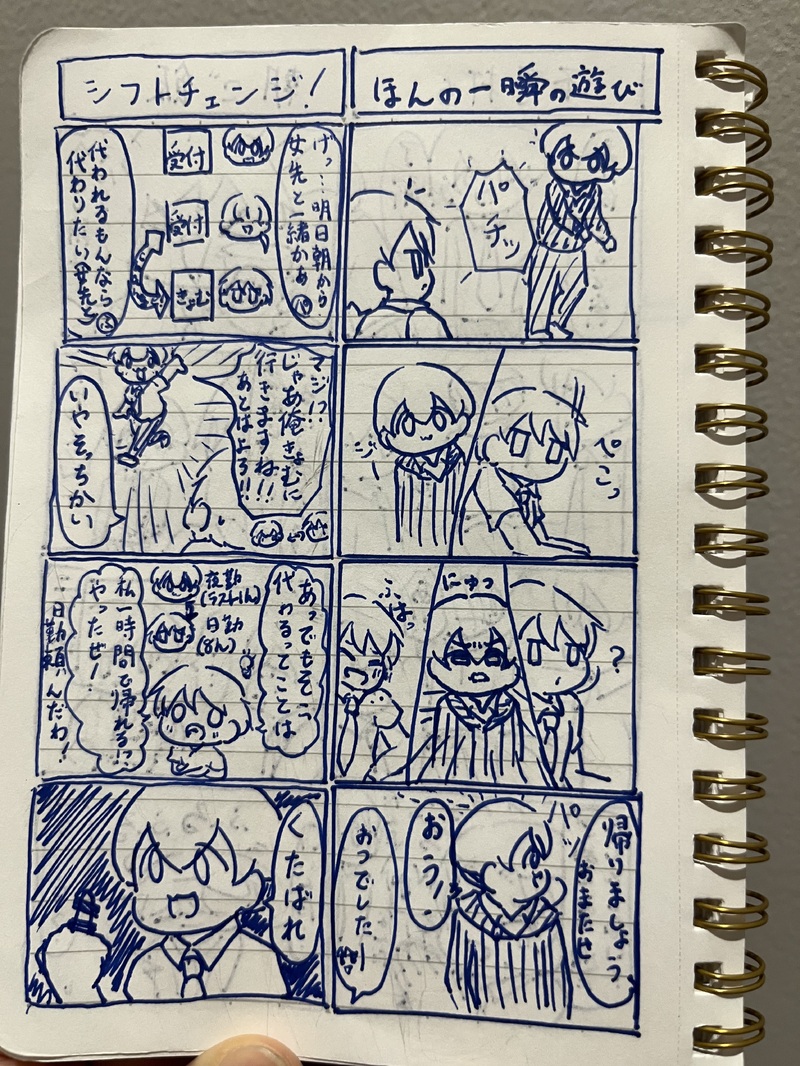 ほんの一瞬の遊び
パチッ
ぺこっ
ジー
?
にゅっ
ふはっ
帰りましょう
おまたせ
パッ
おう!
おつでしたー
シフトチェンジ!
げっ…明日朝から
女先と一緒かぁ
受付
受付
きょむ
代われるもんなら
代わりたい
マジ!?
じゃあ俺きょむに
行きますね!!
あとはよろ!!
いやそっちかい
あっでもそこ
代わるってことは
夜勤
(ラスト1人)
日勤
(8人)
私一時間で帰れる!?
やったぜー!
日勤頼んだわ!
くたばれ